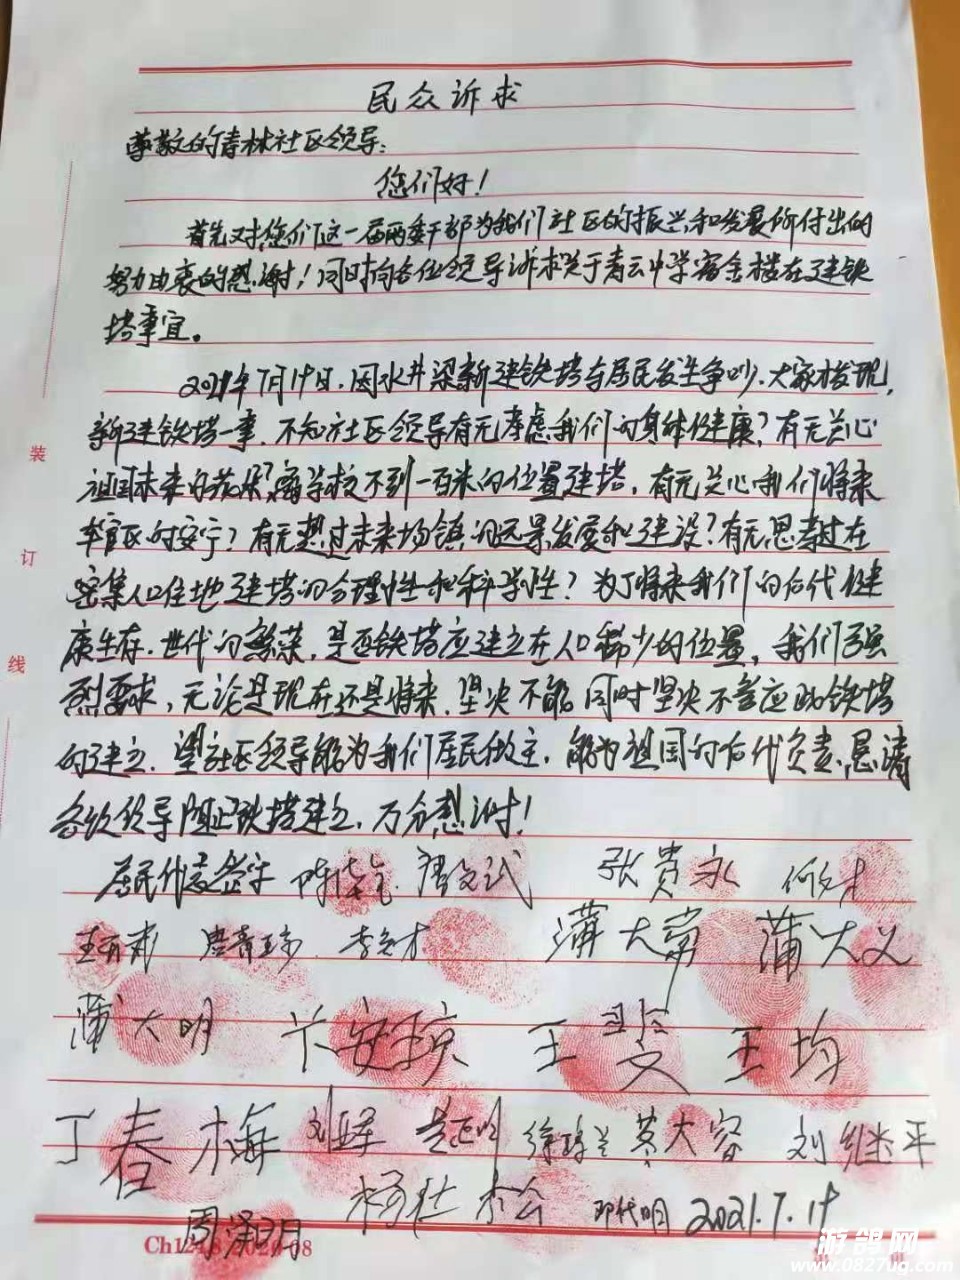 民众诉求
尊敬的青林社区领导：
您们好！
首先对您们这一届两委干部为我们社区的振兴和发展所付出的
努力由衷的感谢！同时向各位领导诉求关于青云中学宿舍楼在建铁
塔事宜。
2021年7月19日，因水井梁新建铁塔与居民发生争吵，大家才发现，
新建铁塔一事，不知社区领导有无考虑我们的身体健康？有无关心
祖国未来的花朵？离学校不到一百米的位置建塔，有无关心我们将来
辖区的安宁？有无想过未来场镇的远景发展和建设？有无思考过在
密集人口住地建塔的合理性和科学性？为了将来我们的后代健
康生存，世代的繁荣，是否铁塔应建立在人口稀少的位置，我们强
烈要求，无论是现在还是将来，坚决不能同时坚决不答应此铁塔
的建立，望社区领导能为我们居民做主，能为祖国的后代负责，恳请
各位领导阻止铁塔建立，万分感谢！
居民代表签字 张贵永 何才
蒲大富 蒲大义
蒲大明 卞安琼 王斐 王均
丁春梅 黄大容 刘继平
杨仕松 邓代明 2021.7.19
周泽明
装
订
线
游鸽网
www.0827ug.com